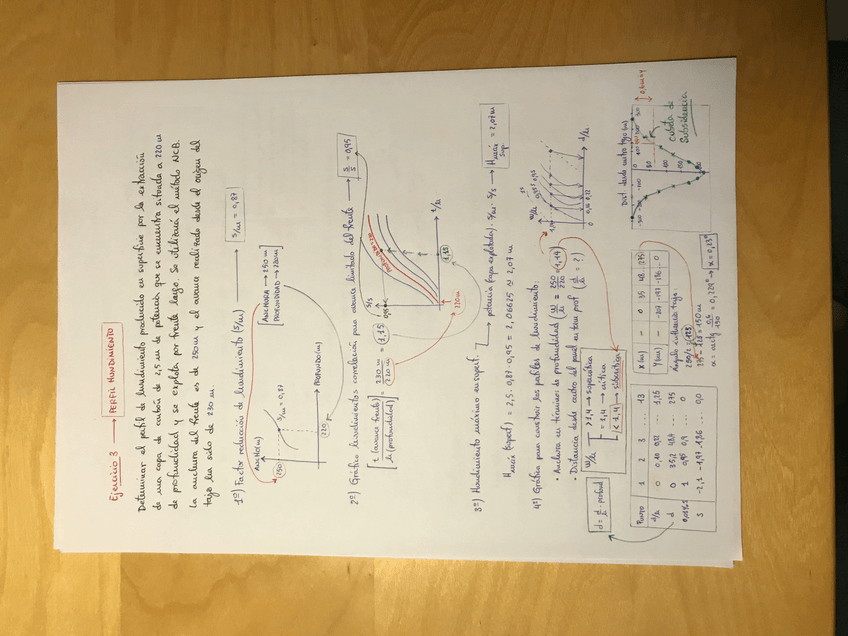 Ejercicio 3 → PERFIL HUNDIMIENTO
Determinar el perfil de hundimiento producido en superficie por la extracción
de una capa de carbón de 2,5 m de potencia que se encuentra situada a 220 m
de profundidad y se explota por frente largo. Se utilizará el método NCB.
La anchura del frente es de 250 m y el avance realizado desde el origen del
tajo ha sido de 230 m.
1º) Factor reducción de hundimiento (S/m) → S/m = 0,87
ANCHO (m)
250
S/m = 0,87
220
PROFUNDO (m)
[ANCHURA → 250 m
PROFUNDIDAD → 220 m]
2º) Gráfico hundimientos correlación para avance limitado del frente → s/S = 0,95
[t (avance frente) / h (profundidad)] = 230 m / 220 m = 1,15
s/S
0,95
220 m
1,15
t/h
3º) Hundimiento máximo en superf.
→ potencia (capa explotada) · S/m · s/S → Hmáx Sup = 2,07 m
Hmáx (superf) = 2,5 · 0,87 · 0,95 = 2,06625 ≈ 2,07 m
4º) Gráfica para construir los perfiles de hundimiento:
• Anchura en términos de profundidad (w/h = 250/220 = 1,14)
• Distancia desde centro del panel en term prof (d/h = ?)
w/h
> 1,4 → supercrítica
= 1,4 → crítica
< 1,4 → subcrítica
d = d/h · profund
w/h
d/h
0 0,16 0,22
Punto 1 2 3 ... 13
d/h 0 0,16 0,22 ... 1,25
d 0 35,2 48,4 ... 275
1 0,95 0,9 ... 0
S -2,1 -1,97 -1,86 ... 0,0
X (m) — 0 35 48 275
Y (mm) — -207 -197 -186 0
Ángulo influencia tajo:
250/2 = 125
275 - 125 = 150 m
Dist desde centro tajo (m)
Cubeta de
Subsidencia